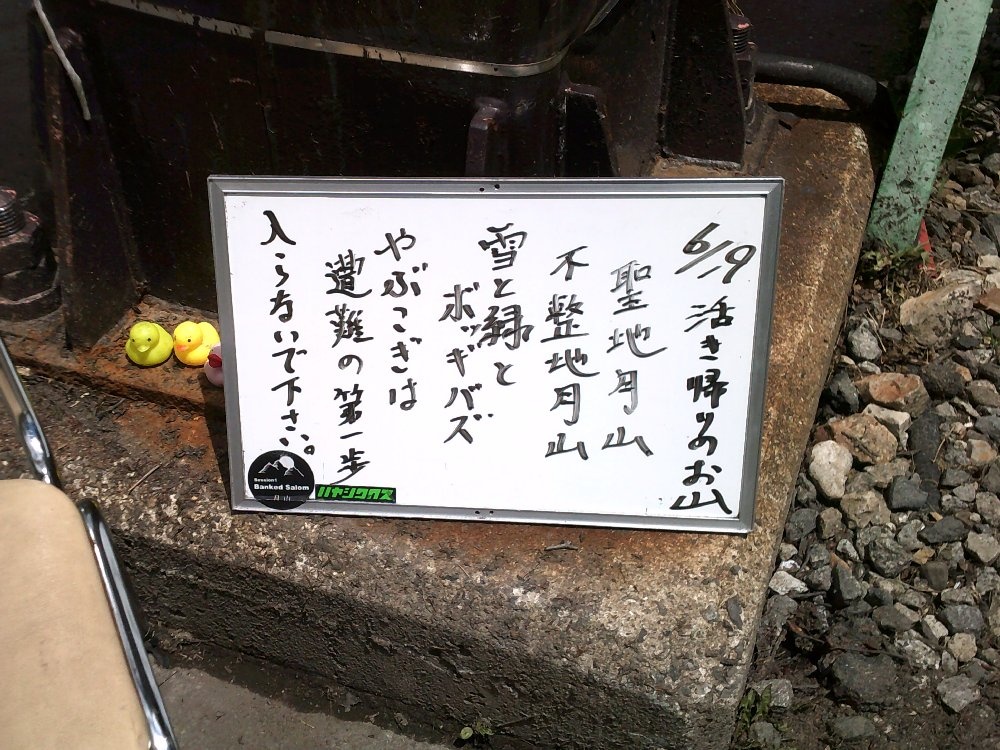 6/19 活き帰りのお山
聖地月山
不整地月山
雪と緑と
ボッギバズ
やぶこぎは
遭難の第一歩
入らないで下さい。
Session1
Banked Salom
月山
ハヤシワクス